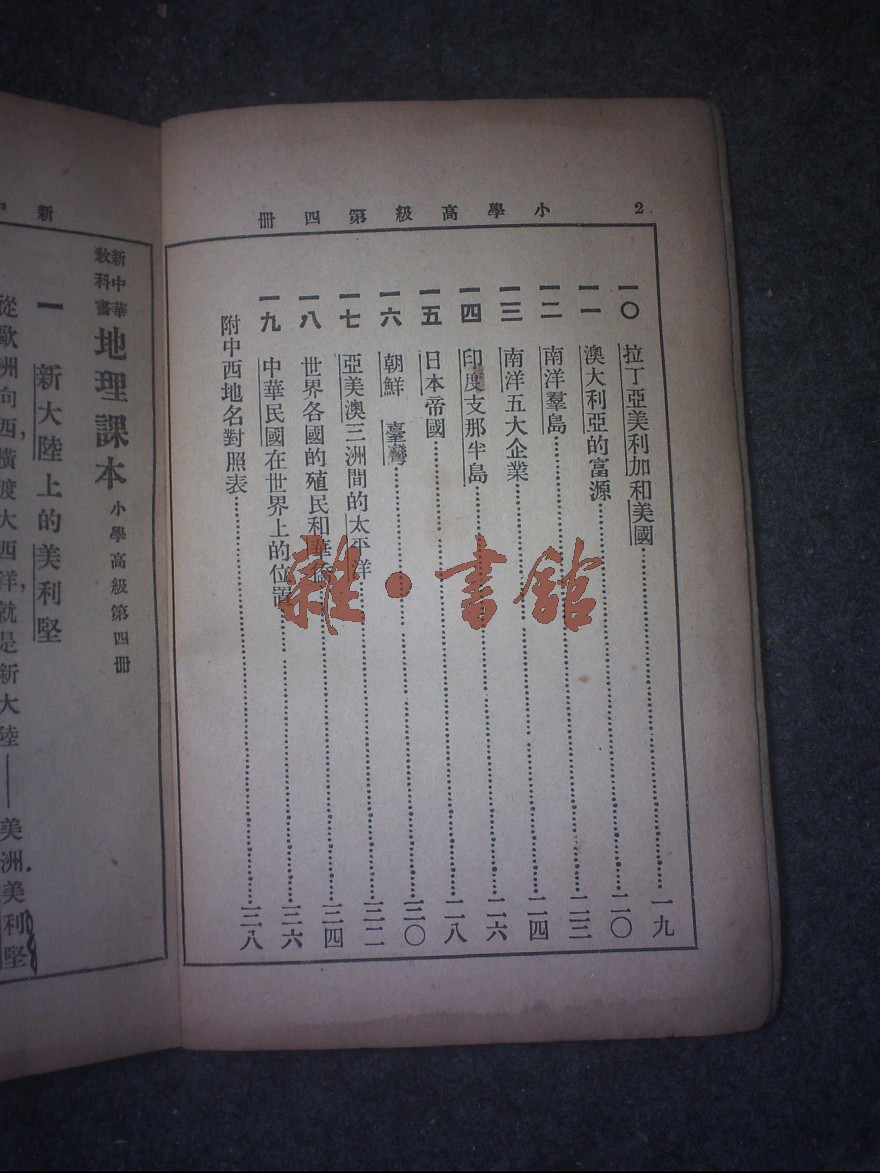 2
小學高級第四冊
一〇 拉丁亞美利加和美國……一九
一一 澳大利亞的富源……二〇
一二 南洋羣島……二三
一三 南洋五大企業……二四
一四 印度支那半島……二六
一五 日本帝國……二八
一六 朝鮮 臺灣……三〇
一七 亞美澳三洲間的太平洋……三二
一八 世界各國的殖民和華僑……三四
一九 中華民國在世界上的位置……三六
附中西地名對照表……三八
新
新中華教科書 地理課本 小學高級第四冊
一 新大陸上的美利堅
從歐洲向西，橫渡大西洋，就是新大陸——美洲美利堅
雜·書館